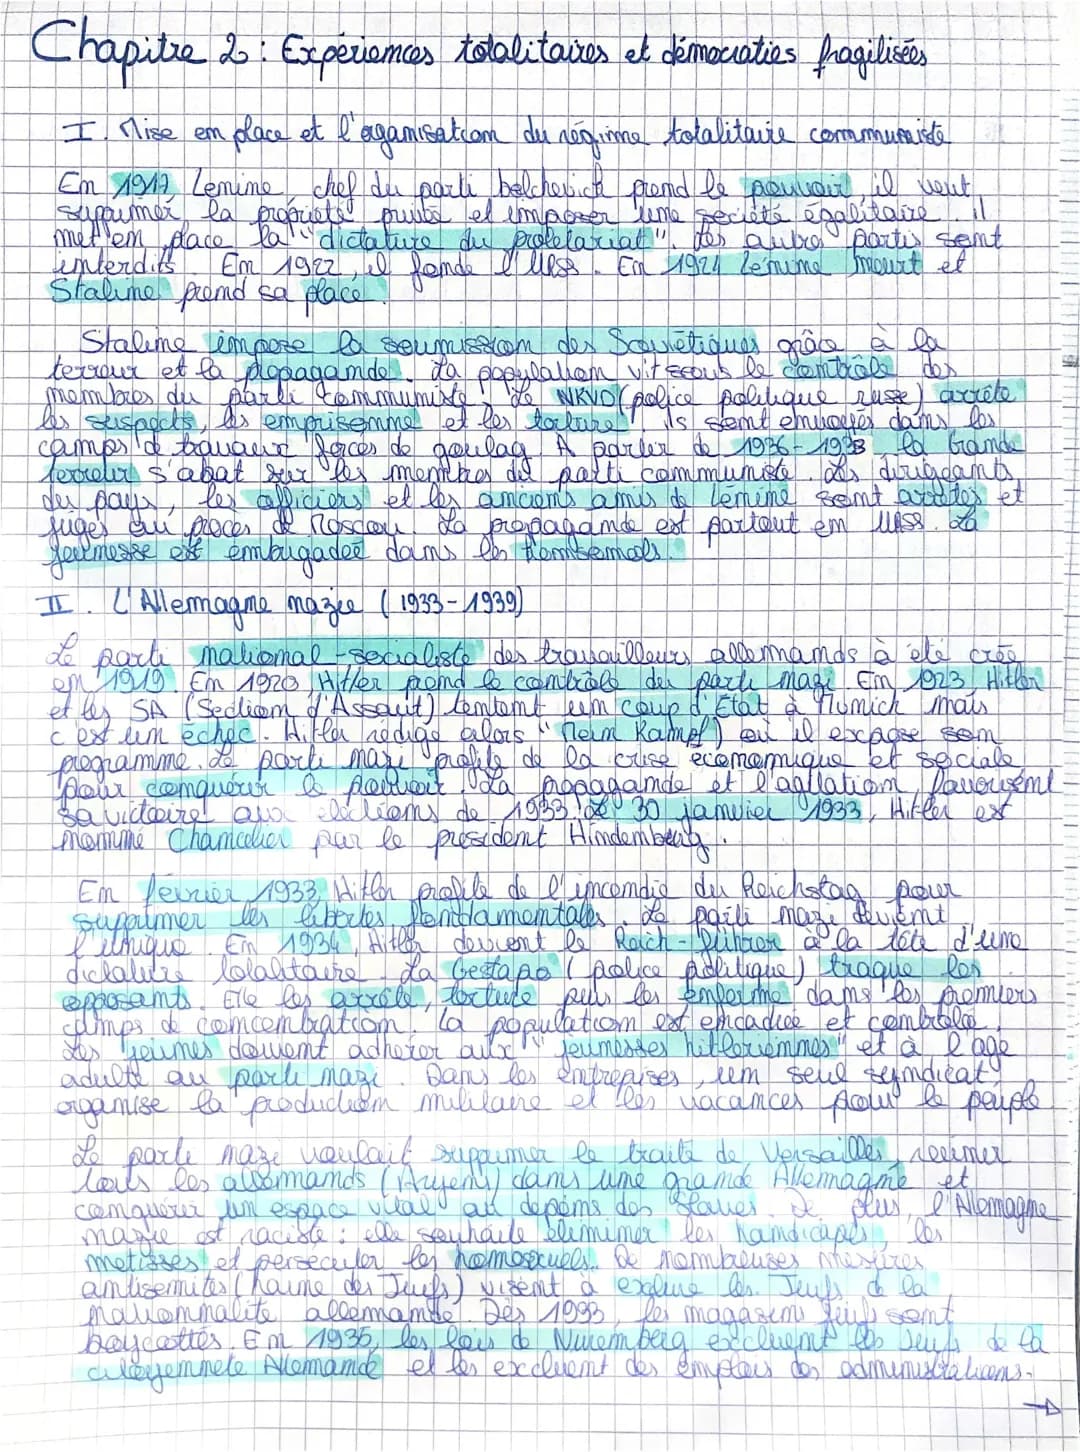 Chapitre 2 : Expériences totalitaires et démocraties fragilisées
I. Mise en place et l'oganisation du régime totalitaire communiste
En 1917, Lenine, chef du parti bolchevich prend le pouvoir il veut
supprimer la propriété privée et imposer une societé égalitaire. il
met en place la "dictature du proletariat". Les autres partis sont
interdits. En 1922, il fonde l'URSS. En 1924 Lénine meurt et
Staline prend sa place.
Staline impose la soumission des Soviétiques grâce à la
terreur et la propagande. La population vit sous le contrôle des
membres du parti communiste. Le NKVD (police politique russe) arrête
les suspects, les emprisonne et les torture. ils sont envoyés dans les
camps de travaux forcés de goulag. A partir de 1936-1938 la Grande
terreur s'abat sur les membres du parti communiste. Les dirigeants
du pays, les officiers et les anciens amis de Lénine sont arrêtés et
jugés au procès de Moscou. La propagande est partout en URSS. La
jeunesse est embrigadée dans les Komsomols.
II. L'Allemagne nazie (1933-1939)
Le parti national-socialiste des travailleurs allemands à été créé
en 1919. En 1920, Hitler prend le contrôle du parti nazi. En 1923, Hitler
et les SA (Section d'Assaut) tentent un coup d'État à Munich mais
c'est un échec. Hitler rédige alors "Mein Kampf") où il expose son
programme. Le parti nazi profite de la crise economique et sociale
pour conquérir le pouvoir. La propagande et l'agitation favorisent
sa victoire aux élections de 1933. Le 30 janvier 1933, Hitler est
nommé Chancelier par le président Hindemberg.
En février 1933, Hitler profite de l'incendie du Reichstag pour
supprimer les libertes fondamentales. Le parti nazi devient
l'unique. En 1934, Hitler devient le Reich-Führer à la tête d'une
dictature totalitaire. La Gestapo (police politique) traque les
opposants. Elle les arrête, torture puis les enferme dans les premiers
camps de concentration. La population est encadrée et contrôlée.
Les jeunes doivent adhérer aux "jeunesses hitleriennes" et à l'age
adulte au parti nazi. Dans les entreprises, un seul syndicat
organise la production militaire et les vacances pour le peuple.
Le parti nazi voulait supprimer le traité de Versailles, réunir
tous les allemands (Aryens) dans une grande Allemagne et
conquérir un espace vital au dépens des Slaves. De plus, l'Allemagne
nazie est raciste : elle souhaite éliminer les handicapés, les
metisses et persecuter les homosexuels. De nombreuses mesures
antisemites (haine des Juifs) visent à exclure les Juifs de la
nationnalité allemande. Dès 1933, les magasins juifs sont
boycottés. En 1935, les lois de Nuremberg excluent les Juifs de la
citoyennete Allemande et les excluent des emplois des administrations.
→